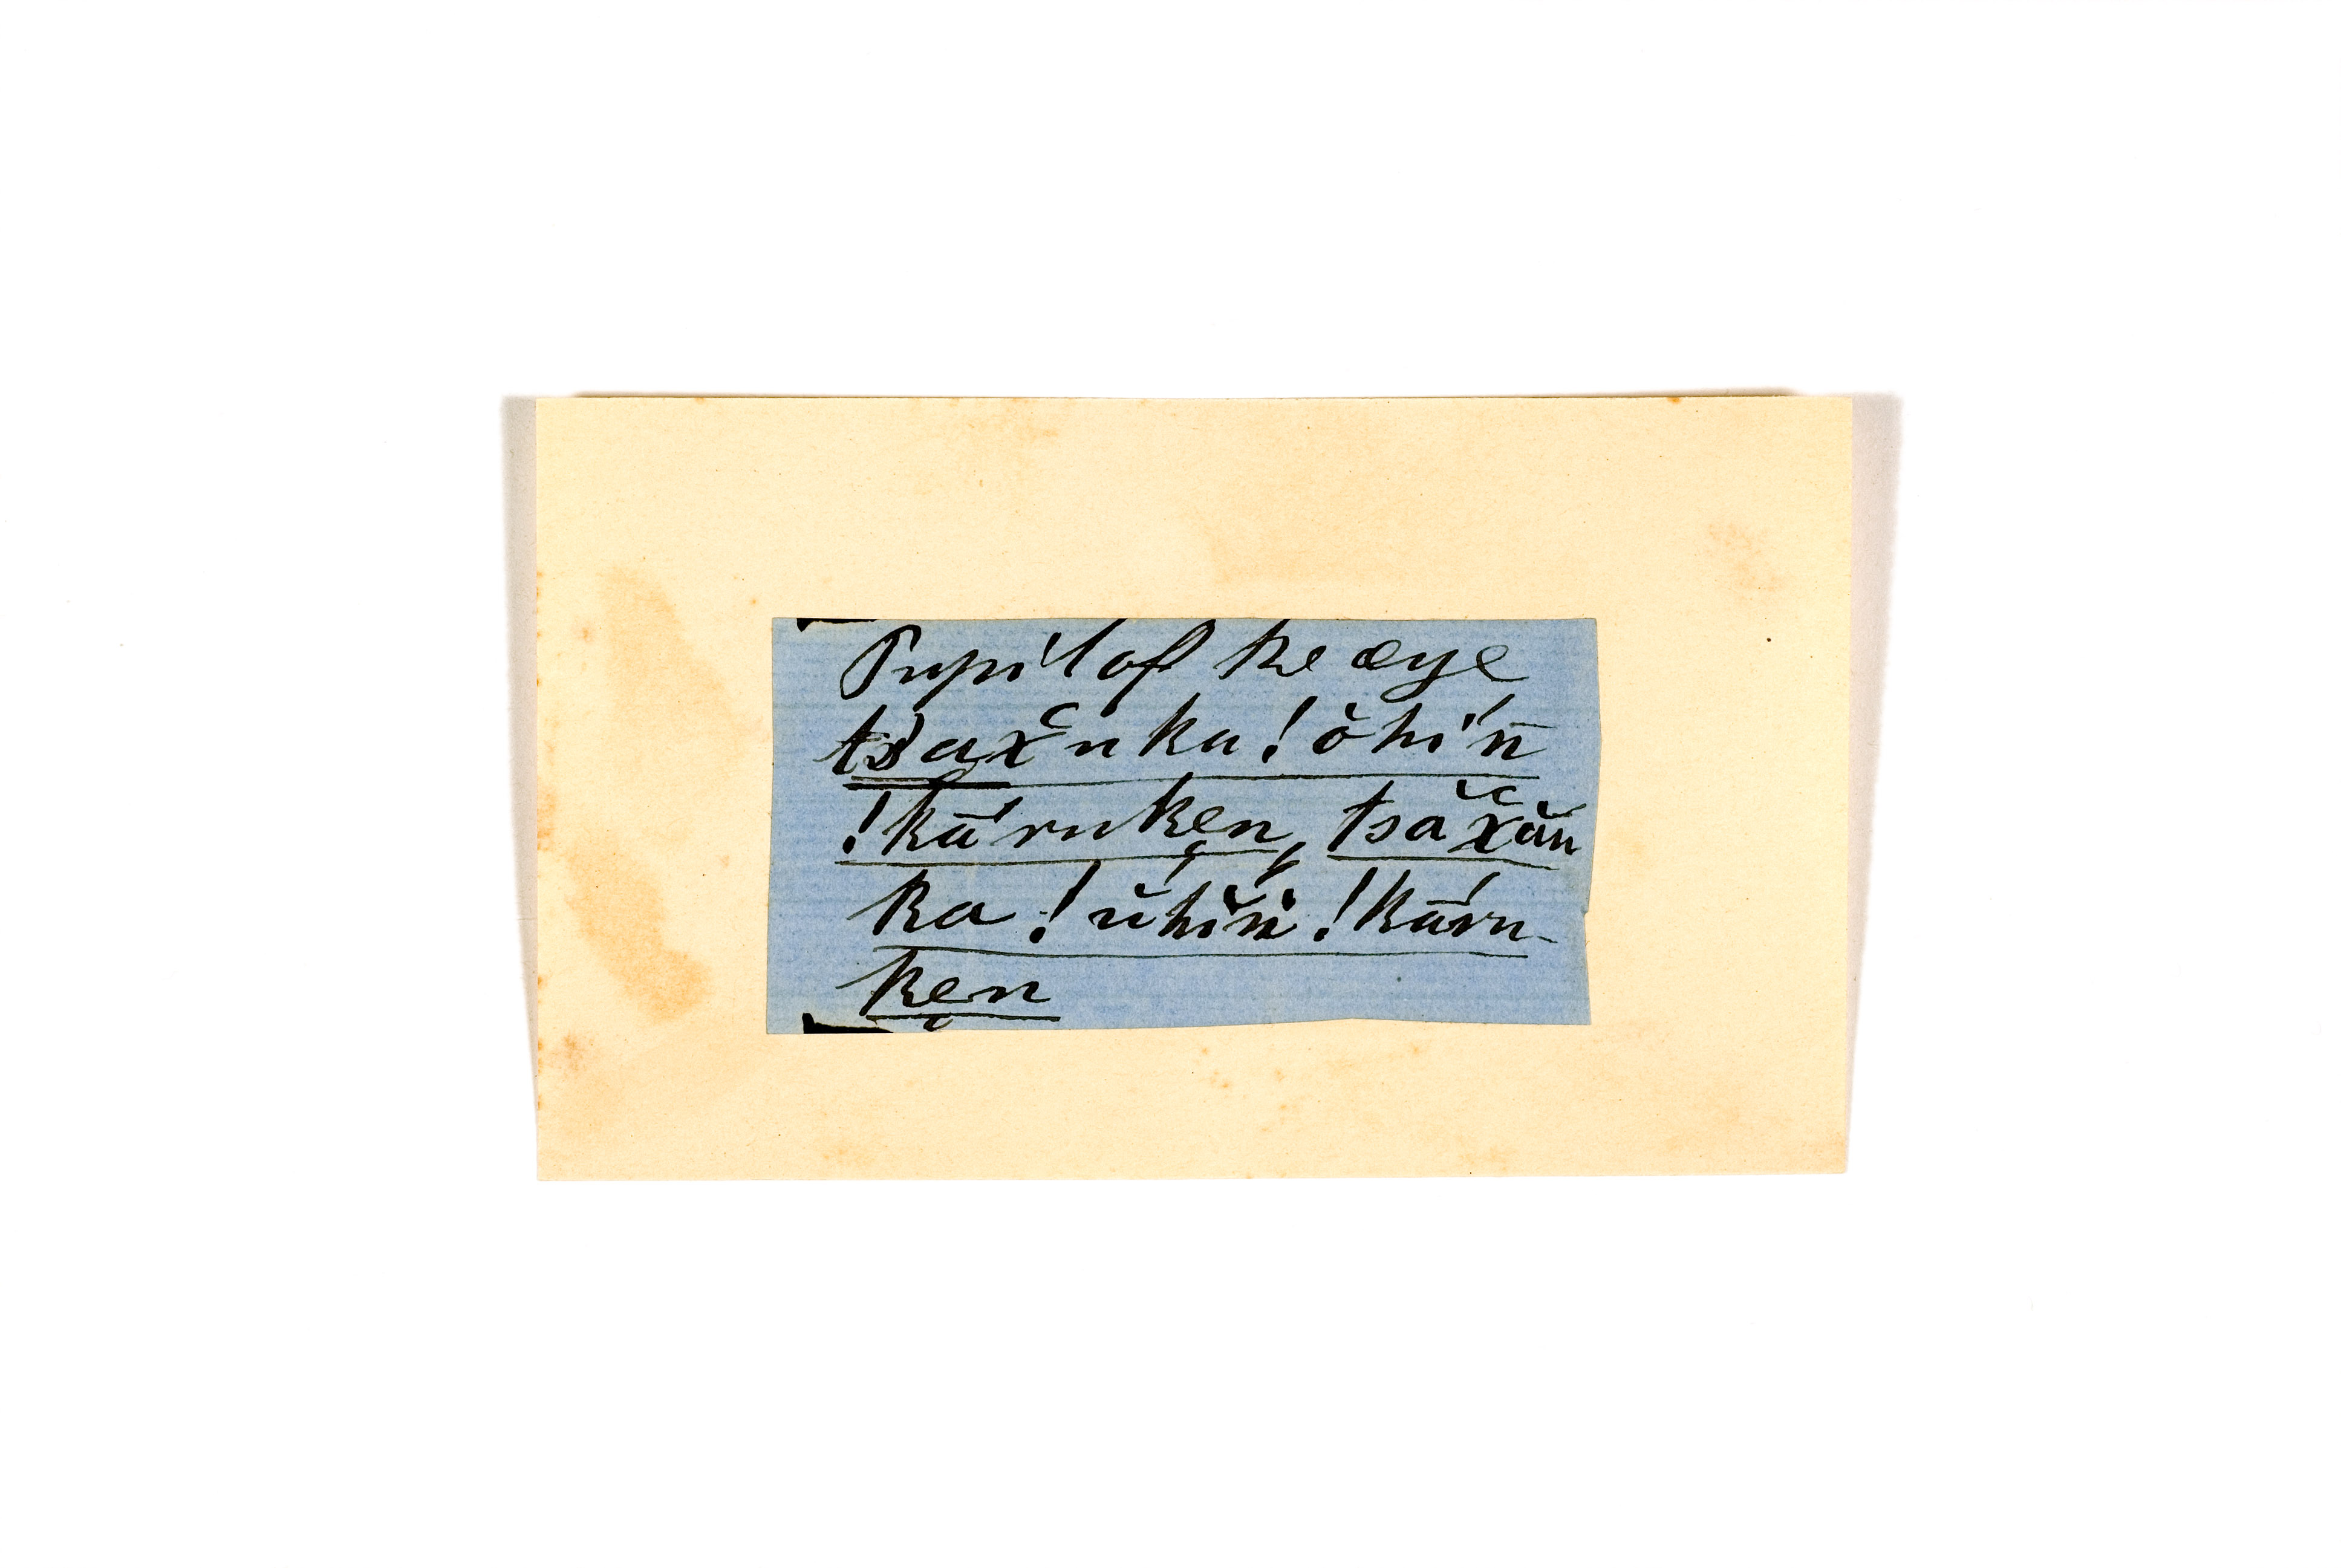 Pupil of the eye
tsaχ̆u ka !ŏhi'n̄
!kā́ruken̨, tsăχ̆ău
ka !ŭhĭń !kā́ru-
ken̨